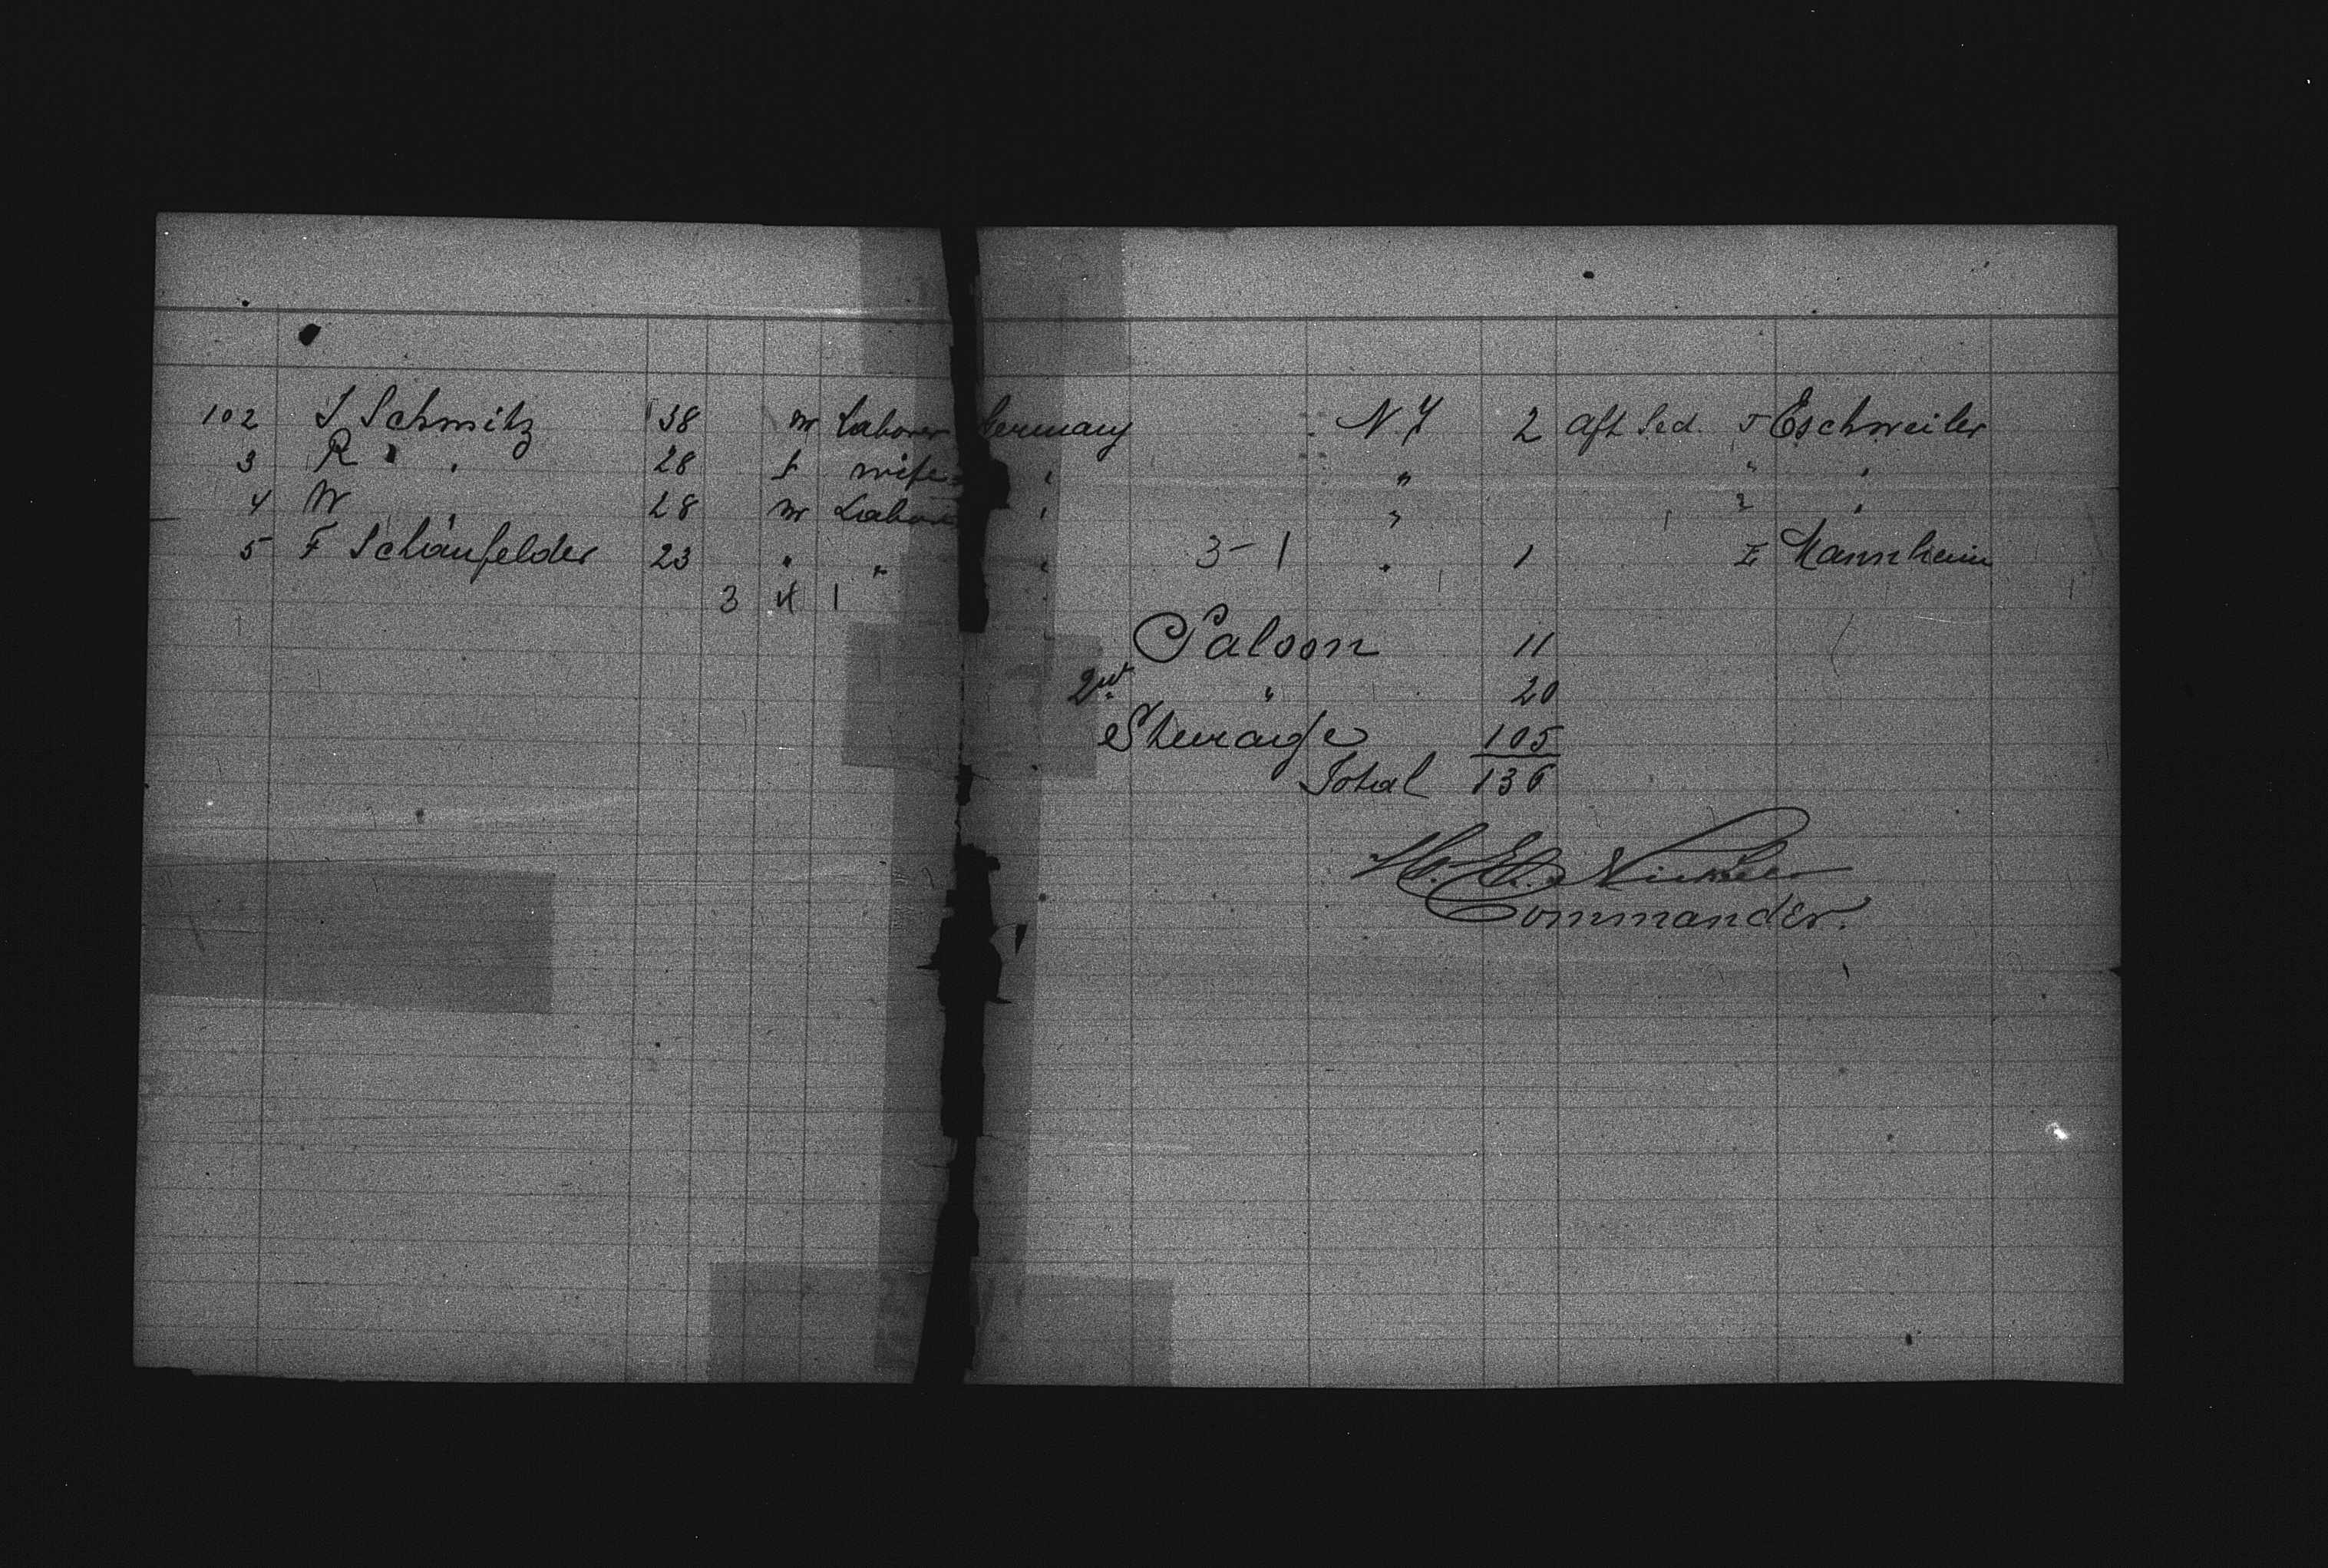 102 J Schmitz 38 m Laborer Germany N.Y 2 aft Sed. T Eschweiler
3 R " " 28 f wife " " " "
4 W " 28 m Labor " " " "
5 F Schönfelder 23 " " " 3-1 " 1 I Mannheim
3 x 1
Saloon 11
2nd " 20
Steerage 105
Total 136
Commander.